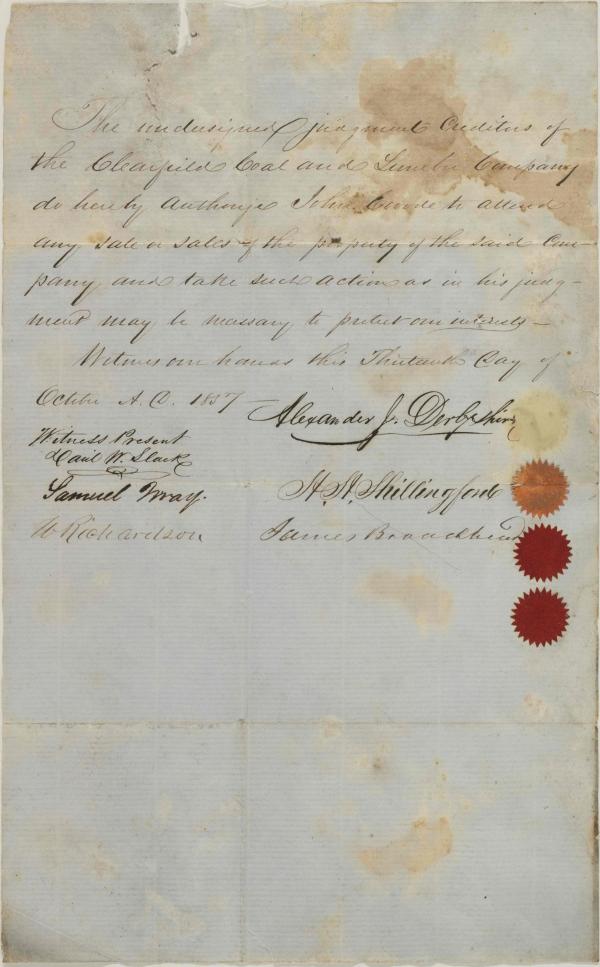 The undersigned judgment Creditors of
the Clearfield Coal and Lumber Company
do hereby Authorize John Goode to attend
any sale or sales of the property of the said Com-
pany and take such action as in his judg-
ment may be necessary to protect our interests—
Witness our hands this Thirteenth Day of
October A.D. 1857—
Alexander J. Derbyshire
Witness Present
W. Slack
Samuel
H. H. Shillingford
W Richardson
James Broadhead